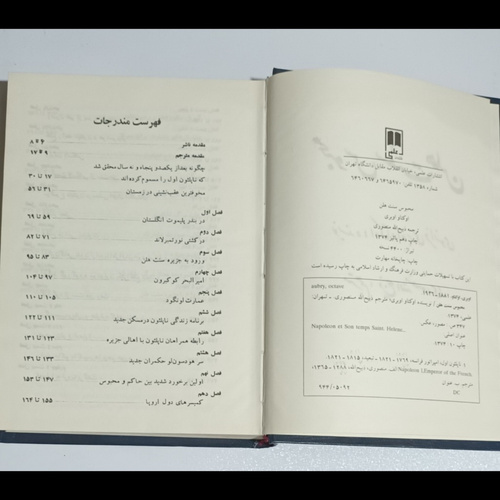 علمی
انتشارات علمی، خیابان انقلاب مقابل دانشگاه تهران
شماره ۱۳۵۸ تلفن ۶۴۶۵۹۷۰ و ۶۴۶۰۶۶۷
محبوس سنت هلن
اوکتاو اوبری
ترجمه ذبیح‌الله منصوری
چاپ دهم پائیز ۱۳۷۴
تیراژ ۴۴۰۰ نسخه
چاپ: چاپخانه مهارت
این کتاب با تسهیلات حمایتی وزارت فرهنگ و ارشاد اسلامی به چاپ رسیده است
aubry, octave
اوبری، اوکتاو، ۱۸۸۱-۱۹۴۶
محبوس سنت هلن / نویسنده اوکتاو اوبری؛ مترجم ذبیح‌الله منصوری. - تهران:
علمی، ۱۳۷۴.
ص: مصور، عکس.
Napoleon et Son temps Saint. Helene.
عنوان اصلی:
چاپ ۱۰: ۱۳۷۴
۱. ناپلئون اول، امپراتور فرانسه، ۱۷۶۹-۱۸۲۱ -- تبعید، ۱۸۱۵-۱۸۲۱.
Napoleon I, Emperor of the French الف. منصوری، ذبیح‌الله، ۱۲۸۸-۱۳۶۵،
مترجم. ب. عنوان
۹۴۴/۰۵۰۹۲
DC
فهرست مندرجات
مقدمه ناشر ۶ تا ۸
مقدمه مترجم ۹ تا ۱۶
چگونه بعد از یکصدو پنجاه و نه سال محقق شد
که ناپلئون اول را مسموم کرده‌اند ۱۷ تا ۳۰
مخوفترین عقب‌نشینی در زمستان ۳۱ تا ۵۱
فصل اول
در بندر پلیموت انگلستان ۵۲ تا ۶۹
فصل دوم
در کشتی نورتمبرلاند ۷۱ تا ۸۲
فصل سوم
ورود به جزیره سنت هلن ۸۳ تا ۹۵
فصل چهارم
امیرالبحر کوکبرون ۹۷ تا ۱۰۴
فصل پنجم
عمارت لونگود ۱۰۵ تا ۱۱۰
فصل ششم
برنامه زندگی ناپلئون در مسکن جدید ۱۱۱ تا ۱۲۲
فصل هفتم
رابطه همراهان ناپلئون با اهالی جزیره ۱۲۳ تا ۱۳۱
فصل هشتم
سر هودسون‌لو حکمران جدید ۱۳۳ تا ۱۴۶
فصل نهم
اولین برخورد شدید بین حاکم و محبوس ۱۴۷ تا ۱۵۳
فصل دهم
کمیسرهای دول اروپا ۱۵۵ تا ۱۶۴